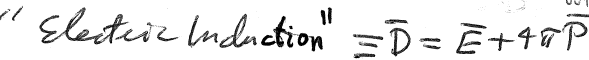 "Electric Induction" ≡ D̄ = Ē + 4π P̄